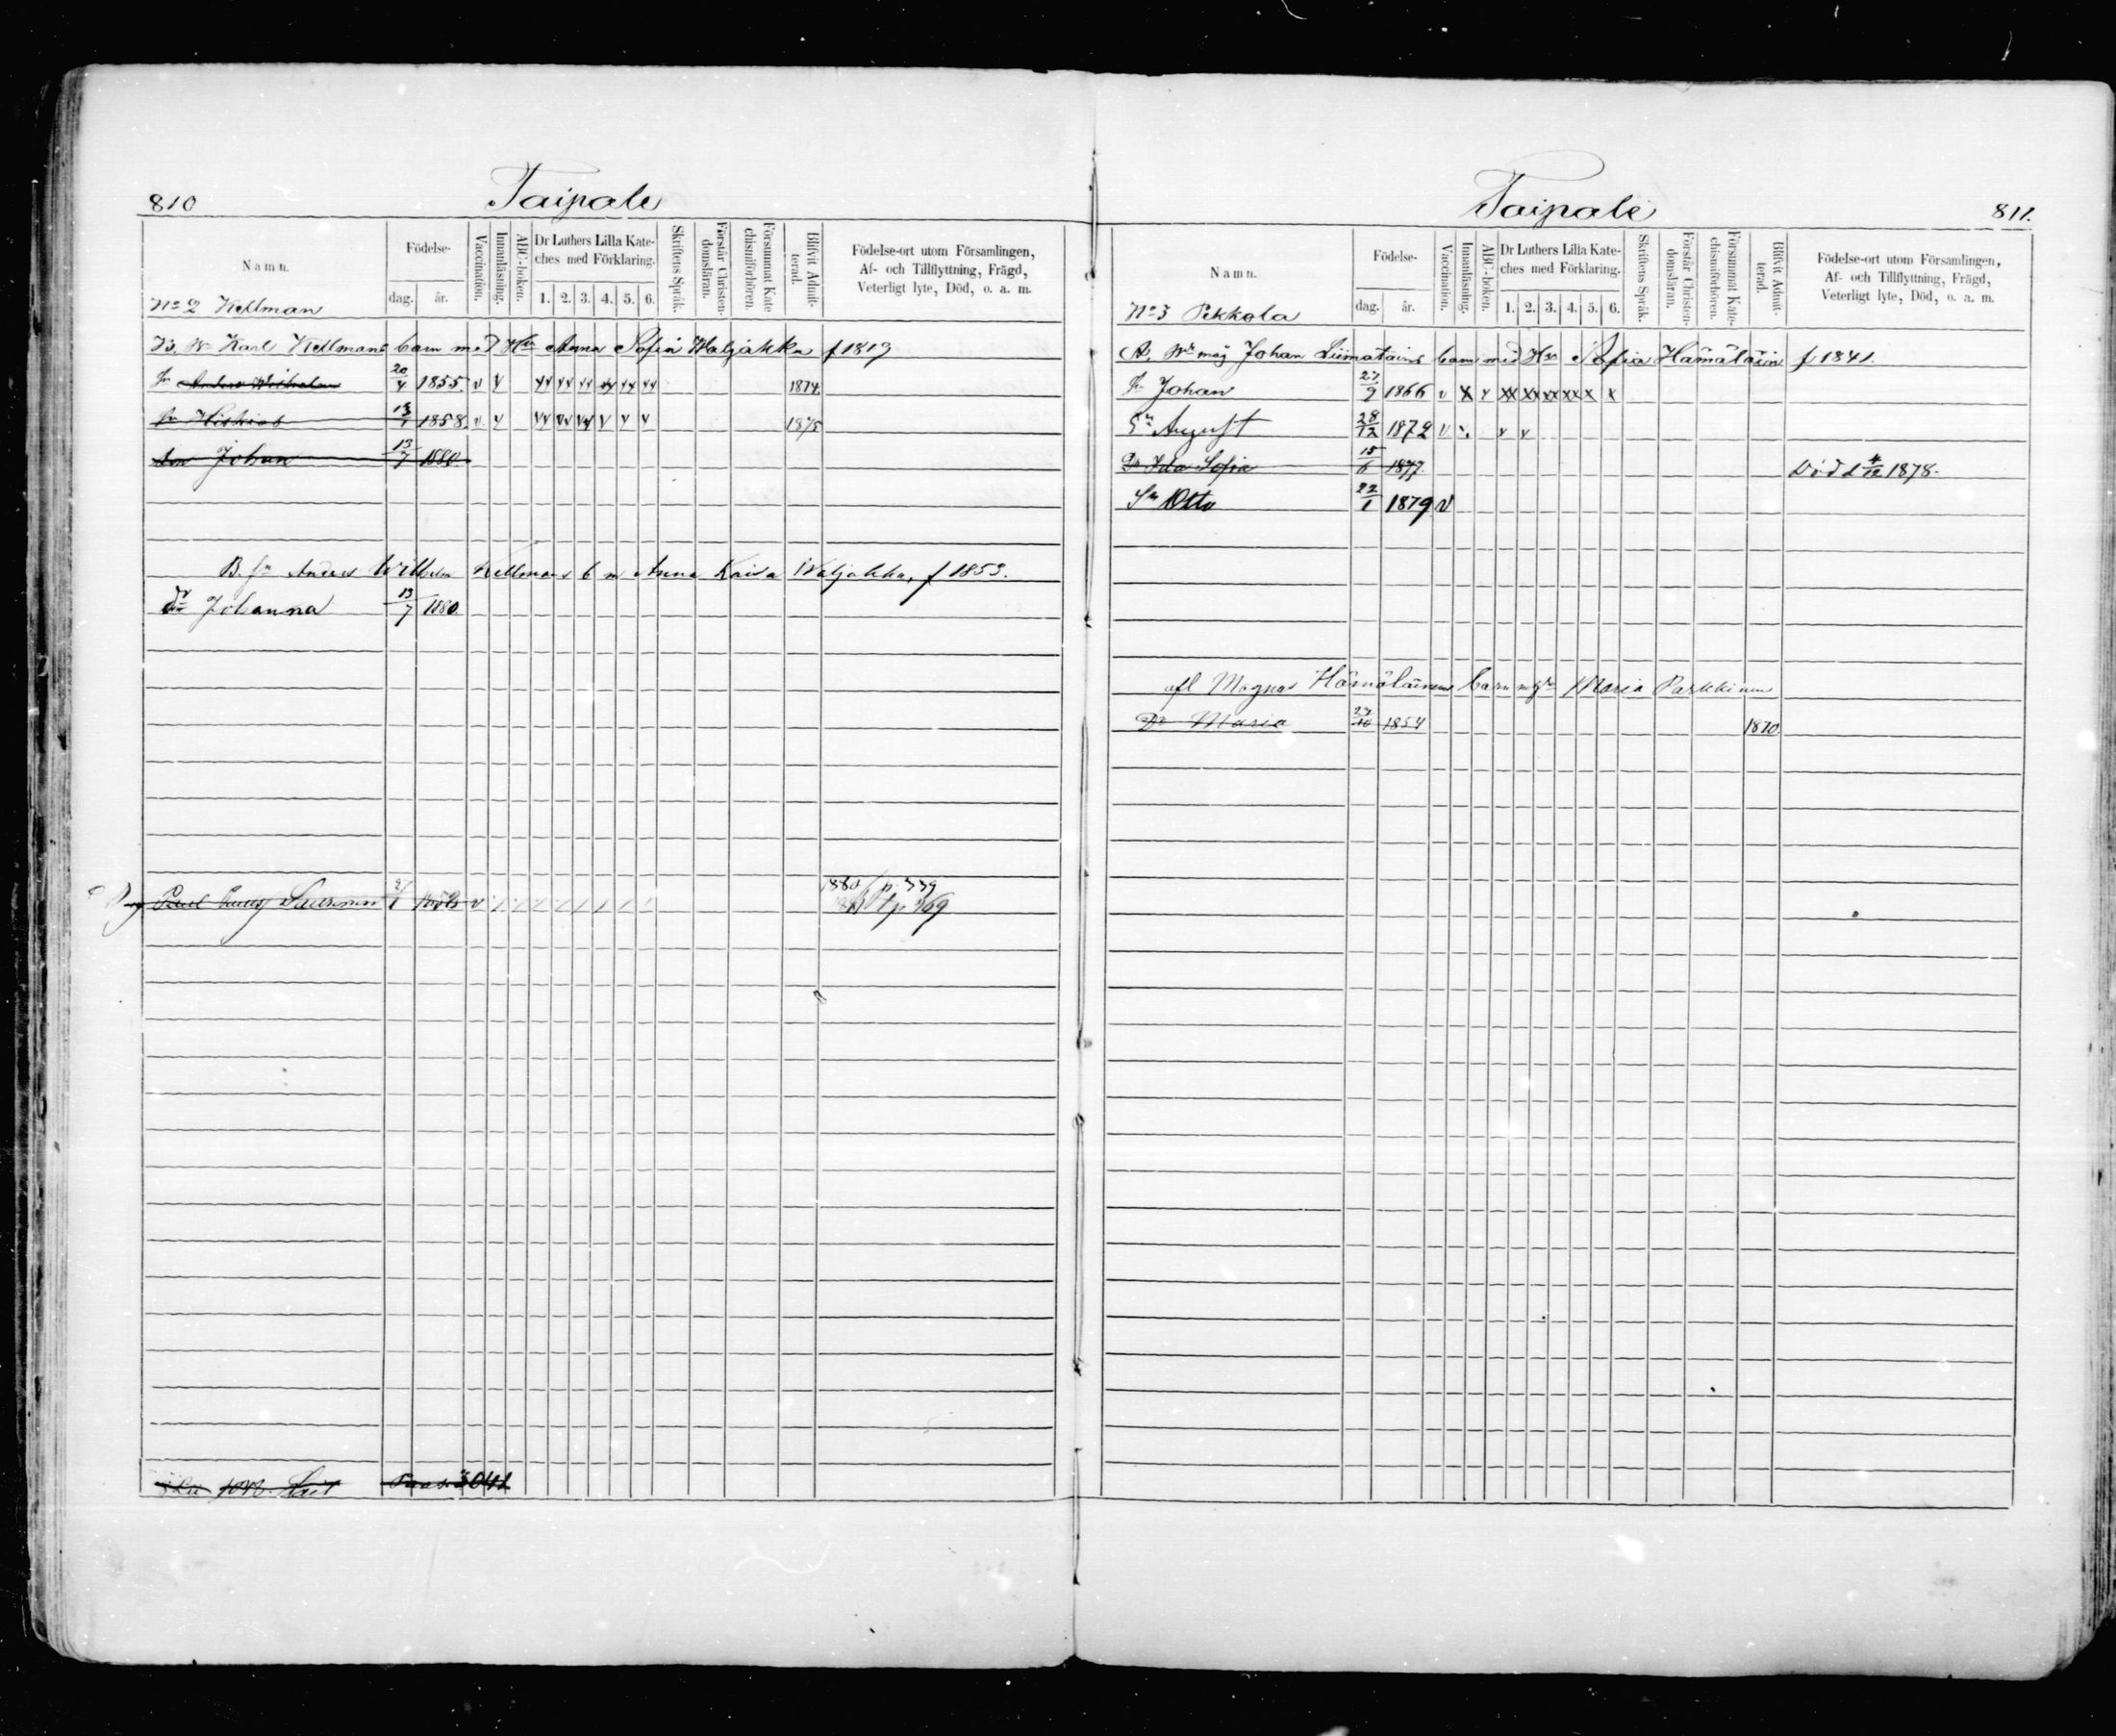 810
Taipale
Namn.
Födelse-
dag. år.
Vaccination.
Innanläsning.
ABC-boken.
Dr Luthers Lilla Kate-
ches med Förklaring.
1. 2. 3. 4. 5. 6.
Skriftens Språk.
Förstår Christen-
domsläran.
Försummat Kate
chismiförhören.
Blifvit Admit-
terad.
Födelse-ort utom Församlingen,
Af- och Tillflyttning, Frägd,
Veterligt lyte, Död, o. a. m.
No 2 Kellman
B. Karl Kellmans barn med Hu Anna Sofia Waljakka f 1819
Sn Anders Wilhelm 20/4 1855 v v vv vv vv vv vv vv 1874
Sn 1858 v v vv vv vv v v v 1875
Johan 13/7 1880
B. sn Anders Wilhelm Kellmans b m Anna Kaisa Waljakka, f 1853.
dr Johanna 13/7 1880
1880 p. 339
811.
Taipale
Namn.
Födelse-
dag. år.
Vaccination.
Innanläsning.
ABC-boken.
Dr Luthers Lilla Kate-
ches med Förklaring.
1. 2. 3. 4. 5. 6.
Skriftens Språk.
Förstår Christen-
domsläran.
Försummat Kate-
chismiförhören.
Blifvit Admit-
terad.
Födelse-ort utom Församlingen,
Af- och Tillflyttning, Frägd,
Veterligt lyte, Död, o. a. m.
No 3 Pekkola
A. måg Johan Liimatains barn med Hu Sofia Hämäläin f 1841.
Sn Johan 27/9 1866 v x v xx xx xx xx x x
Sn August 28/12 1872 v v v
Dr Ida Sofia 15/6 1877 Död d 4/12 1878.
Sn Otto 22/1 1879 v
afl Magnus Hämäläinens barn m Maria Parkkinen
Dr Maria 27/10 1854 1870